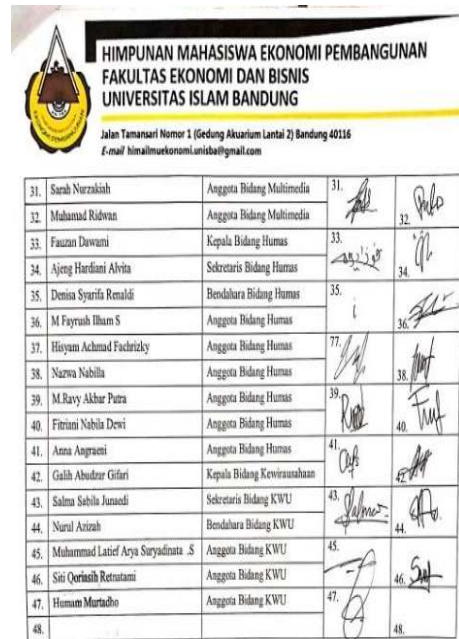 HIMPUNAN MAHASISWA EKONOMI PEMBANGUNAN
FAKULTAS EKONOMI DAN BISNIS
UNIVERSITAS ISLAM BANDUNG
Jalan Tamansari Nomor 1 (Gedung Akuarium Lantai 2) Bandung 40116
E-mail himailmuekonomi.unisba@gmail.com
31. Sarah Nurzakiah Anggota Bidang Multimedia 31.
32. Muhamad Ridwan Anggota Bidang Multimedia 32.
33. Fauzan Dawami Kepala Bidang Humas 33.
34. Ajeng Hardiani Alvita Sekretaris Bidang Humas 34.
35. Denisa Syarifa Renaldi Bendahara Bidang Humas 35.
36. M Fayrush Ilham S Anggota Bidang Humas 36.
37. Hisyam Achmad Fachrizky Anggota Bidang Humas 77.
38. Nazwa Nabilla Anggota Bidang Humas 38.
39. M.Ravy Akbar Putra Anggota Bidang Humas 39.
40. Fitriani Nabila Dewi Anggota Bidang Humas 40.
41. Anna Angraeni Anggota Bidang Humas 41.
42. Galih Abudzar Gifari Kepala Bidang Kewirausahaan 42.
43. Salma Sabila Junaedi Sekretaris Bidang KWU 43.
44. Nurul Azizah Bendahara Bidang KWU 44.
45. Muhammad Latief Arya Suryadinata .S Anggota Bidang KWU 45.
46. Siti Qoriasih Retnatami Anggota Bidang KWU 46.
47. Humam Murtadho Anggota Bidang KWU 47.
48. 48.